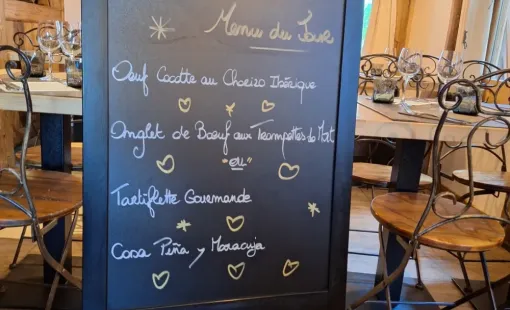 Menu du Jour
Oeuf Cocotte au Chorizo Ibérique
Onglet de Bœuf aux Trompettes de Mort
"ou"
Tartiflette Gourmande
Casa Piña y Maracuja